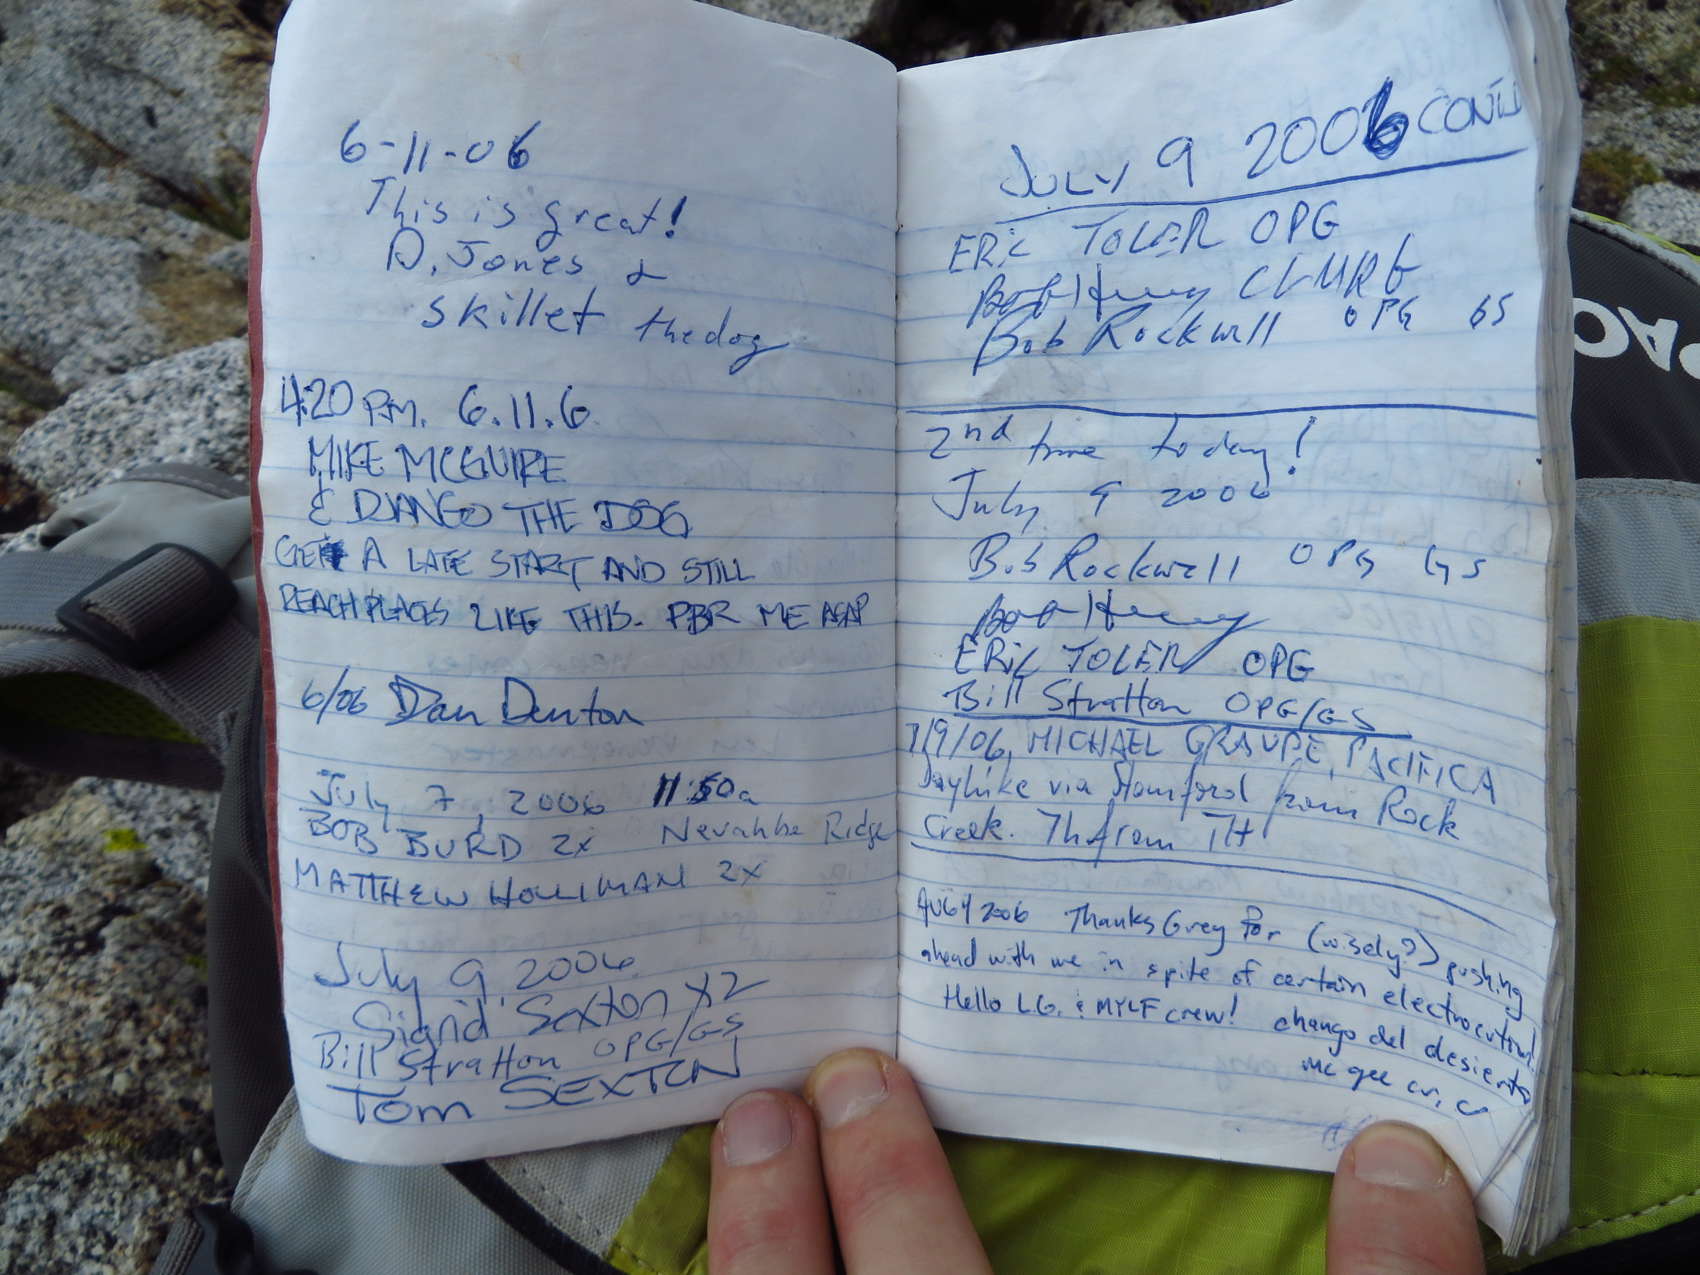 6-11-06
This is great!
D. Jones &
skillet the dog
4:20 P.M. 6.11.6.
MIKE MCGUIRE
& DJANGO THE DOG
GET A LATE START AND STILL
REACH PLACES LIKE THIS. PBR ME ASAP
6/06 Dan Denton
July 7, 2006 11:50a
BOB BURD 2x Nevahbe Ridge
MATTHEW HOLLIMAN 2x
July 9, 2006
Sigrid Sexton x2
Bill Stratton OPG/GS
Tom SEXTON
JULY 9 2006 CONT'D
ERIC TOLER OPG
CLMRG
Bob Rockwell OPG GS
2nd time today!
July 9 2006
Bob Rockwell OPG GS
ERIC TOLER OPG
Bill Stratton OPG/GS
7/9/06, MICHAEL GRAUPE, PACIFICA
Dayhike via Stanford from Rock
Creek. 7h from TH
AUG 4 2006 Thanks Greg for (wisely?) pushing
ahead with me in spite of certain electrocution!
Hello L.G. & MYLF crew! chango del desierto
mc gee cr, ca
PAC